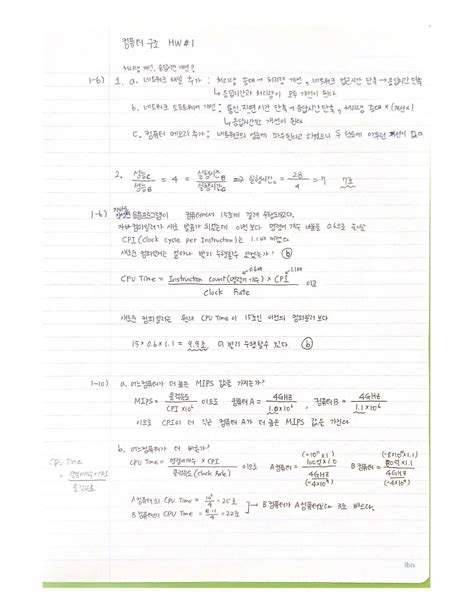 컴퓨터 구조 HW#1
처리량 개선, 응답시간 개선?
1-5) 1. a. 네트워크 채널 추가 : 처리량 증대 → 처리량 개선, 네트워크 접근시간 단축 → 응답시간 단축
↳ 응답시간과 처리량이 모두 개선이 된다
b. 네트워크 소프트웨어 개선 : 통신 지연시간 단축 → 응답시간 단축, 처리량 증대 X
↳ 응답시간만 개선이 된다
c. 컴퓨터 메모리 추가 : 네트워크의 성능에 하였으니 두 척도에 아무런 개선이 없다
2. 성능C / 성능B = 4 = 실행시간B / 실행시간C 실행시간C = 28 / 4 = 7 7초
1-6) 응용프로그램이 컴퓨터에서 15초에 걸려 수행되었다.
자바 컴파일러가 새로 발표가 되었는데 이전보다 명령어 개수 0.6으로
CPI (clock cycle per Instruction)는 1.1
새로운 컴파일러는 얼마나 빨리 수행할수 있겠는가? ⓑ
0.6배 1.1배
CPU Time = Instruction count(명령어 개수) × CPI / Clock Rate 이므로
새로운 컴파일러는 원래 CPU Time이 15초인 이전의 컴파일러 보다
15×0.6×1.1 = 9.9초 더 빨리 수행할수 있다. ⓑ
1-10) a. 어느컴퓨터가 더 높은 MIPS 값을 가지는가?
MIPS = 클럭속도 / CPI×10⁶ 이므로 컴퓨터 A = 4GHz / 1.0×10⁶, 컴퓨터 B = 4GHz / 1.1×10⁶
이므로 CPI이 더 작은 컴퓨터 A가 더 높은 MIPS 값을 가진다.
b. 어느컴퓨터가 더 빠른가?
CPU Time = 명령어개수 × CPI / 클럭속도(Clock Rate) 이므로 A컴퓨터 = 100억×1.0 / 4GHz B컴퓨터 = 80억×1.1 / 4GHz
(=4×10⁹) (=4×10⁹)
CPU Time
= 명령어개수×CPI / 클럭속도
A컴퓨터의 CPU Time = = 25초
B컴퓨터의 CPU Time = = 22초
→ B컴퓨터가 A컴퓨터보다 3초 빠르다.